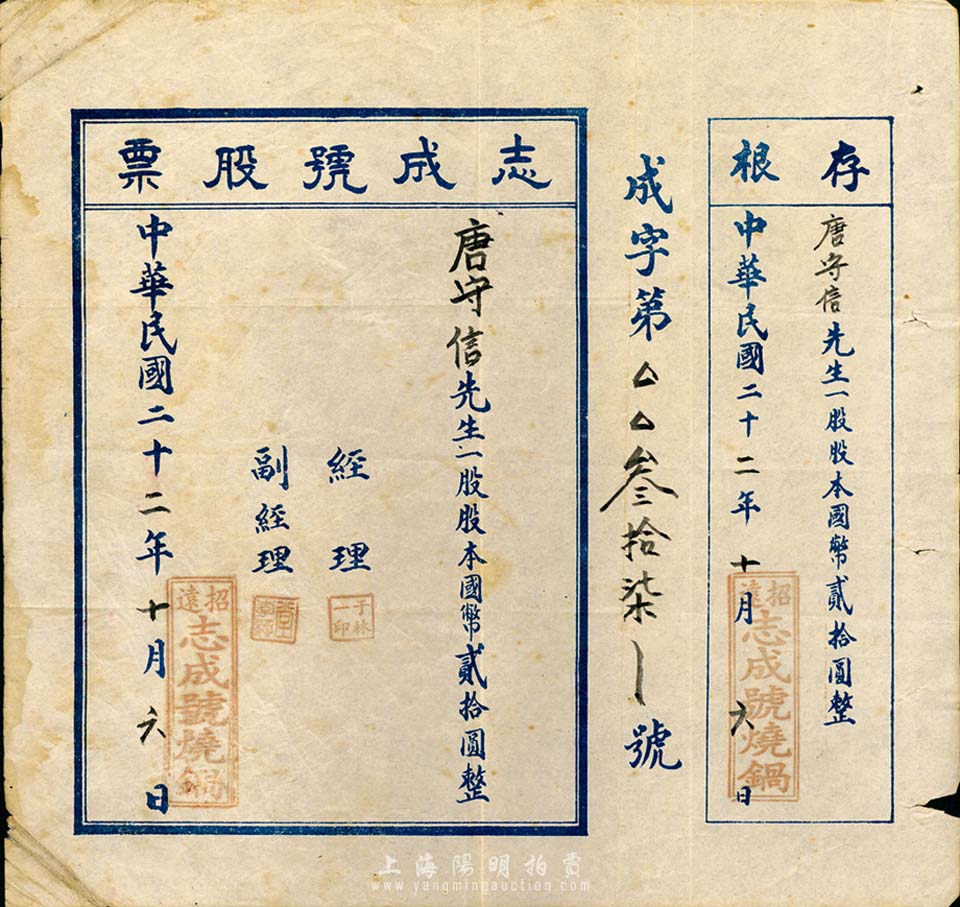 存根
唐守信先生一股股本國幣貳拾圓整
中華民國二十二年十月六日
招遠
志成號燒鍋
成字第△△叁拾柒號
志成號股票
唐守信先生一股股本國幣貳拾圓整
經理
于林一印
副經理
中華民國二十二年十月六日
招遠
志成號燒鍋
上海陽明拍賣
www.yangmingauction.com